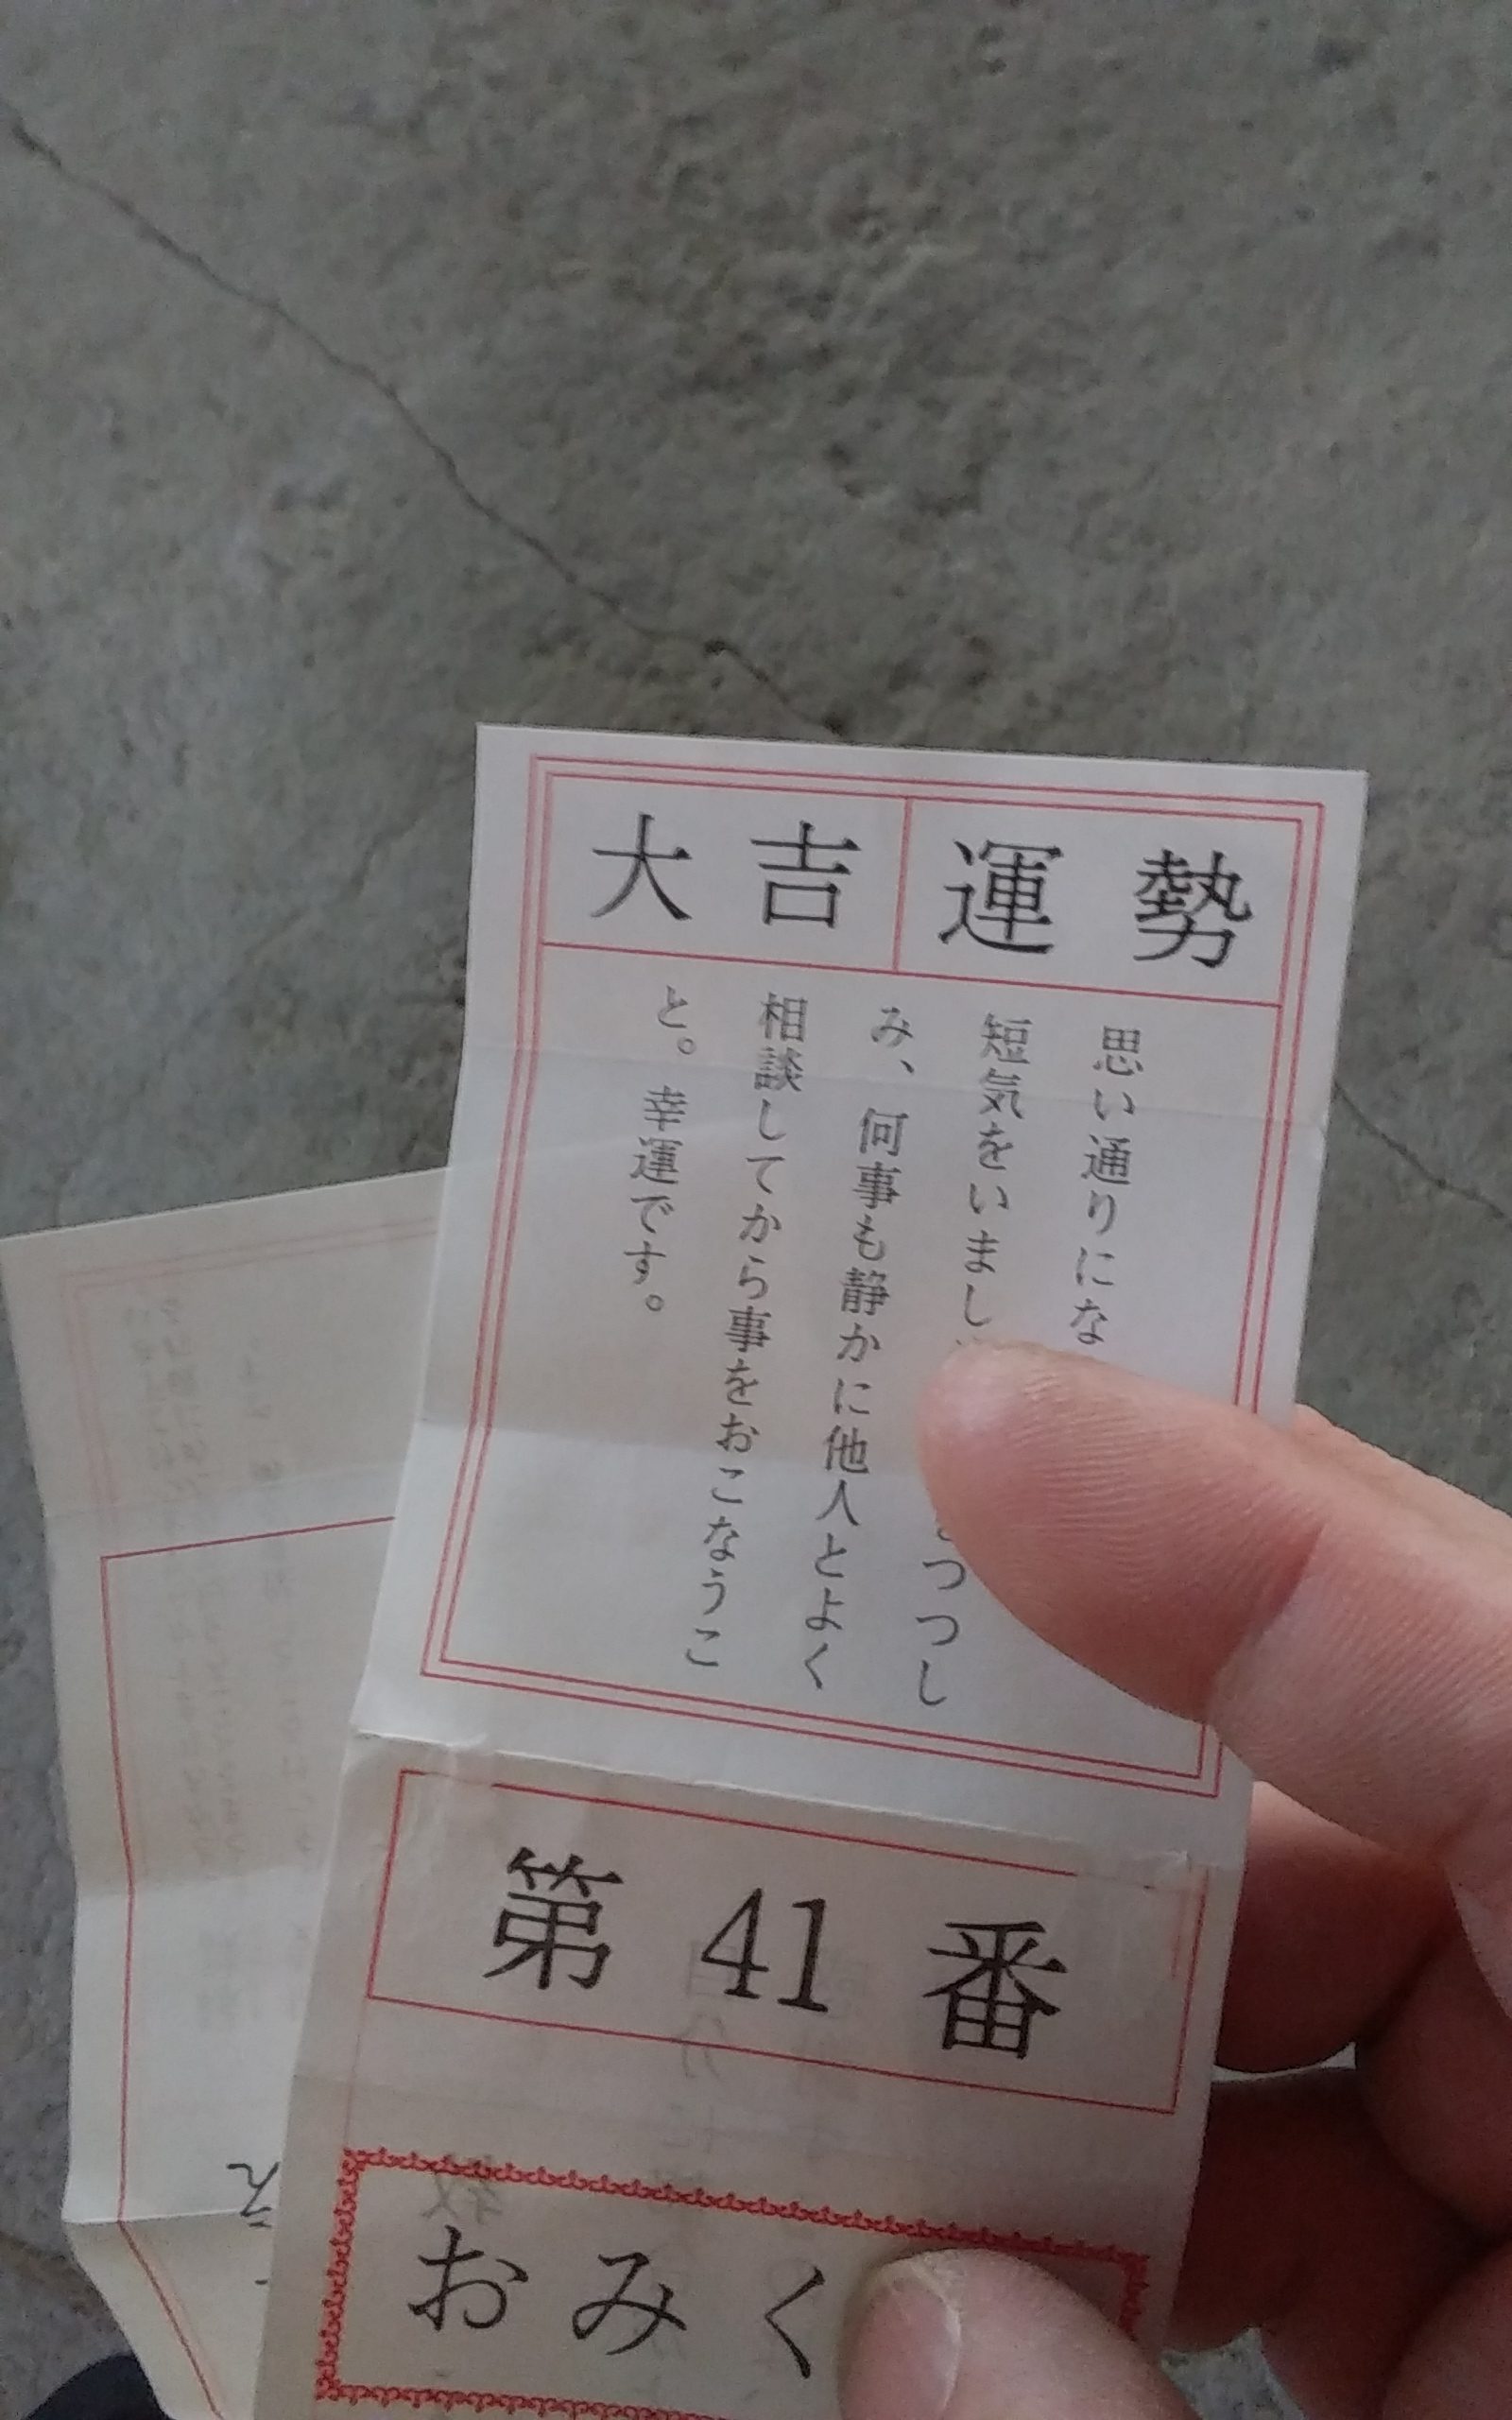 大吉 運勢
思い通りにな
短気をいまし
つつし
み、何事も静かに他人とよく
相談してから事をおこなうこ
と。幸運です。
第41番
おみく